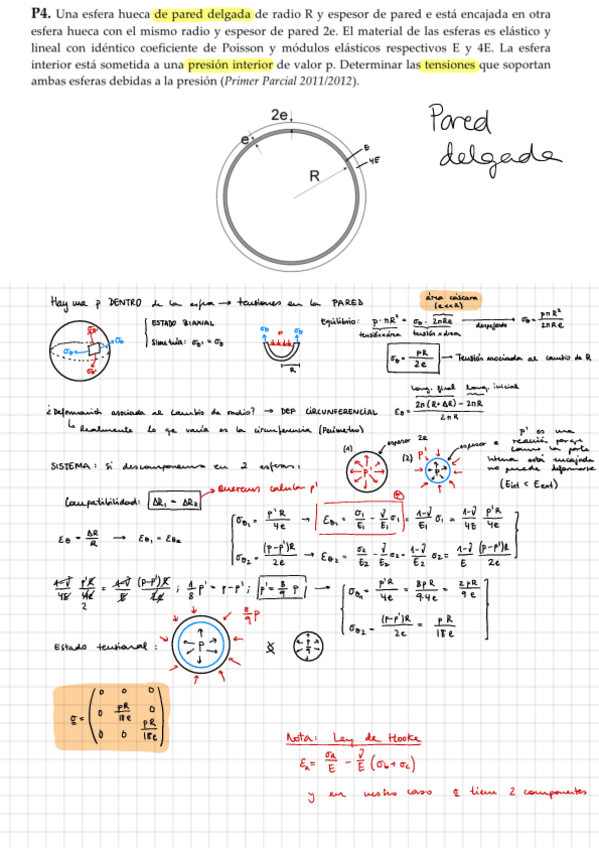 P4. Una esfera hueca de pared delgada de radio R y espesor de pared e está encajada en otra
esfera hueca con el mismo radio y espesor de pared 2e. El material de las esferas es elástico y
lineal con idéntico coeficiente de Poisson y módulos elásticos respectivos E y 4E. La esfera
interior está sometida a una presión interior de valor p. Determinar las tensiones que soportan
ambas esferas debidas a la presión (Primer Parcial 2011/2012).
2e
e
E
4E
R
Pared
delgada
Hay una p DENTRO de la esfera → tensiones en la PARED
área cáscara
(e<<R)
ESTADO BIAXIAL
Simetría: σθ₁ = σθ
Equilibrio: p·πR² = σθ · 2πRe → despejando σθ = pπR² / 2πRe
tensión×área tensión×área
σθ = pR / 2e → Tensión asociada al cambio de R
R
¿Deformación asociada al cambio de radio? → DEF CIRCUNFERENCIAL εθ = 2π(R+ΔR) - 2πR / 2πR
Long. final Long. inicial
↳ Realmente lo que varía es la circunferencia (Perímetro)
SISTEMA: Si descomponemos en 2 esferas:
(1) espesor 2e
(2) p' espesor e
p' es una
reacción porque
como la parte
interna está encajada
no puede deformarse
(Eint < Eext)
Compatibilidad: ΔR₁ = ΔR₂ → Queremos calcular p'
εθ = ΔR / R → εθ₁ = εθ₂
σθ₁ = p'R / 4e → εθ₁ = σ₁/E₁ - ν/E₁ σ₁ = 1-ν/E₁ σ₁ = 1-ν/4E p'R/4e
σθ₂ = (p-p')R / 2e → εθ₂ = σ₂/E₂ - ν/E₂ σ₂ = 1-ν/E₂ σ₂ = 1-ν/E (p-p')R/2e
1-ν/4E p'R/4e = 1-ν/E (p-p')R/2e ; 1/8 p' = p-p' ; p' = 8/9 p
2
σθ₁ = p'R/4e = 8pR/9·4e = 2pR/9e
σθ₂ = (p-p')R/2e = pR/18e
Estado tensional:
P
8/9 p
σ = ( 0 0 0
0 pR/18e 0
0 0 pR/18e )
Nota: Ley de Hooke
εa = σa/E - ν/E (σb + σc)